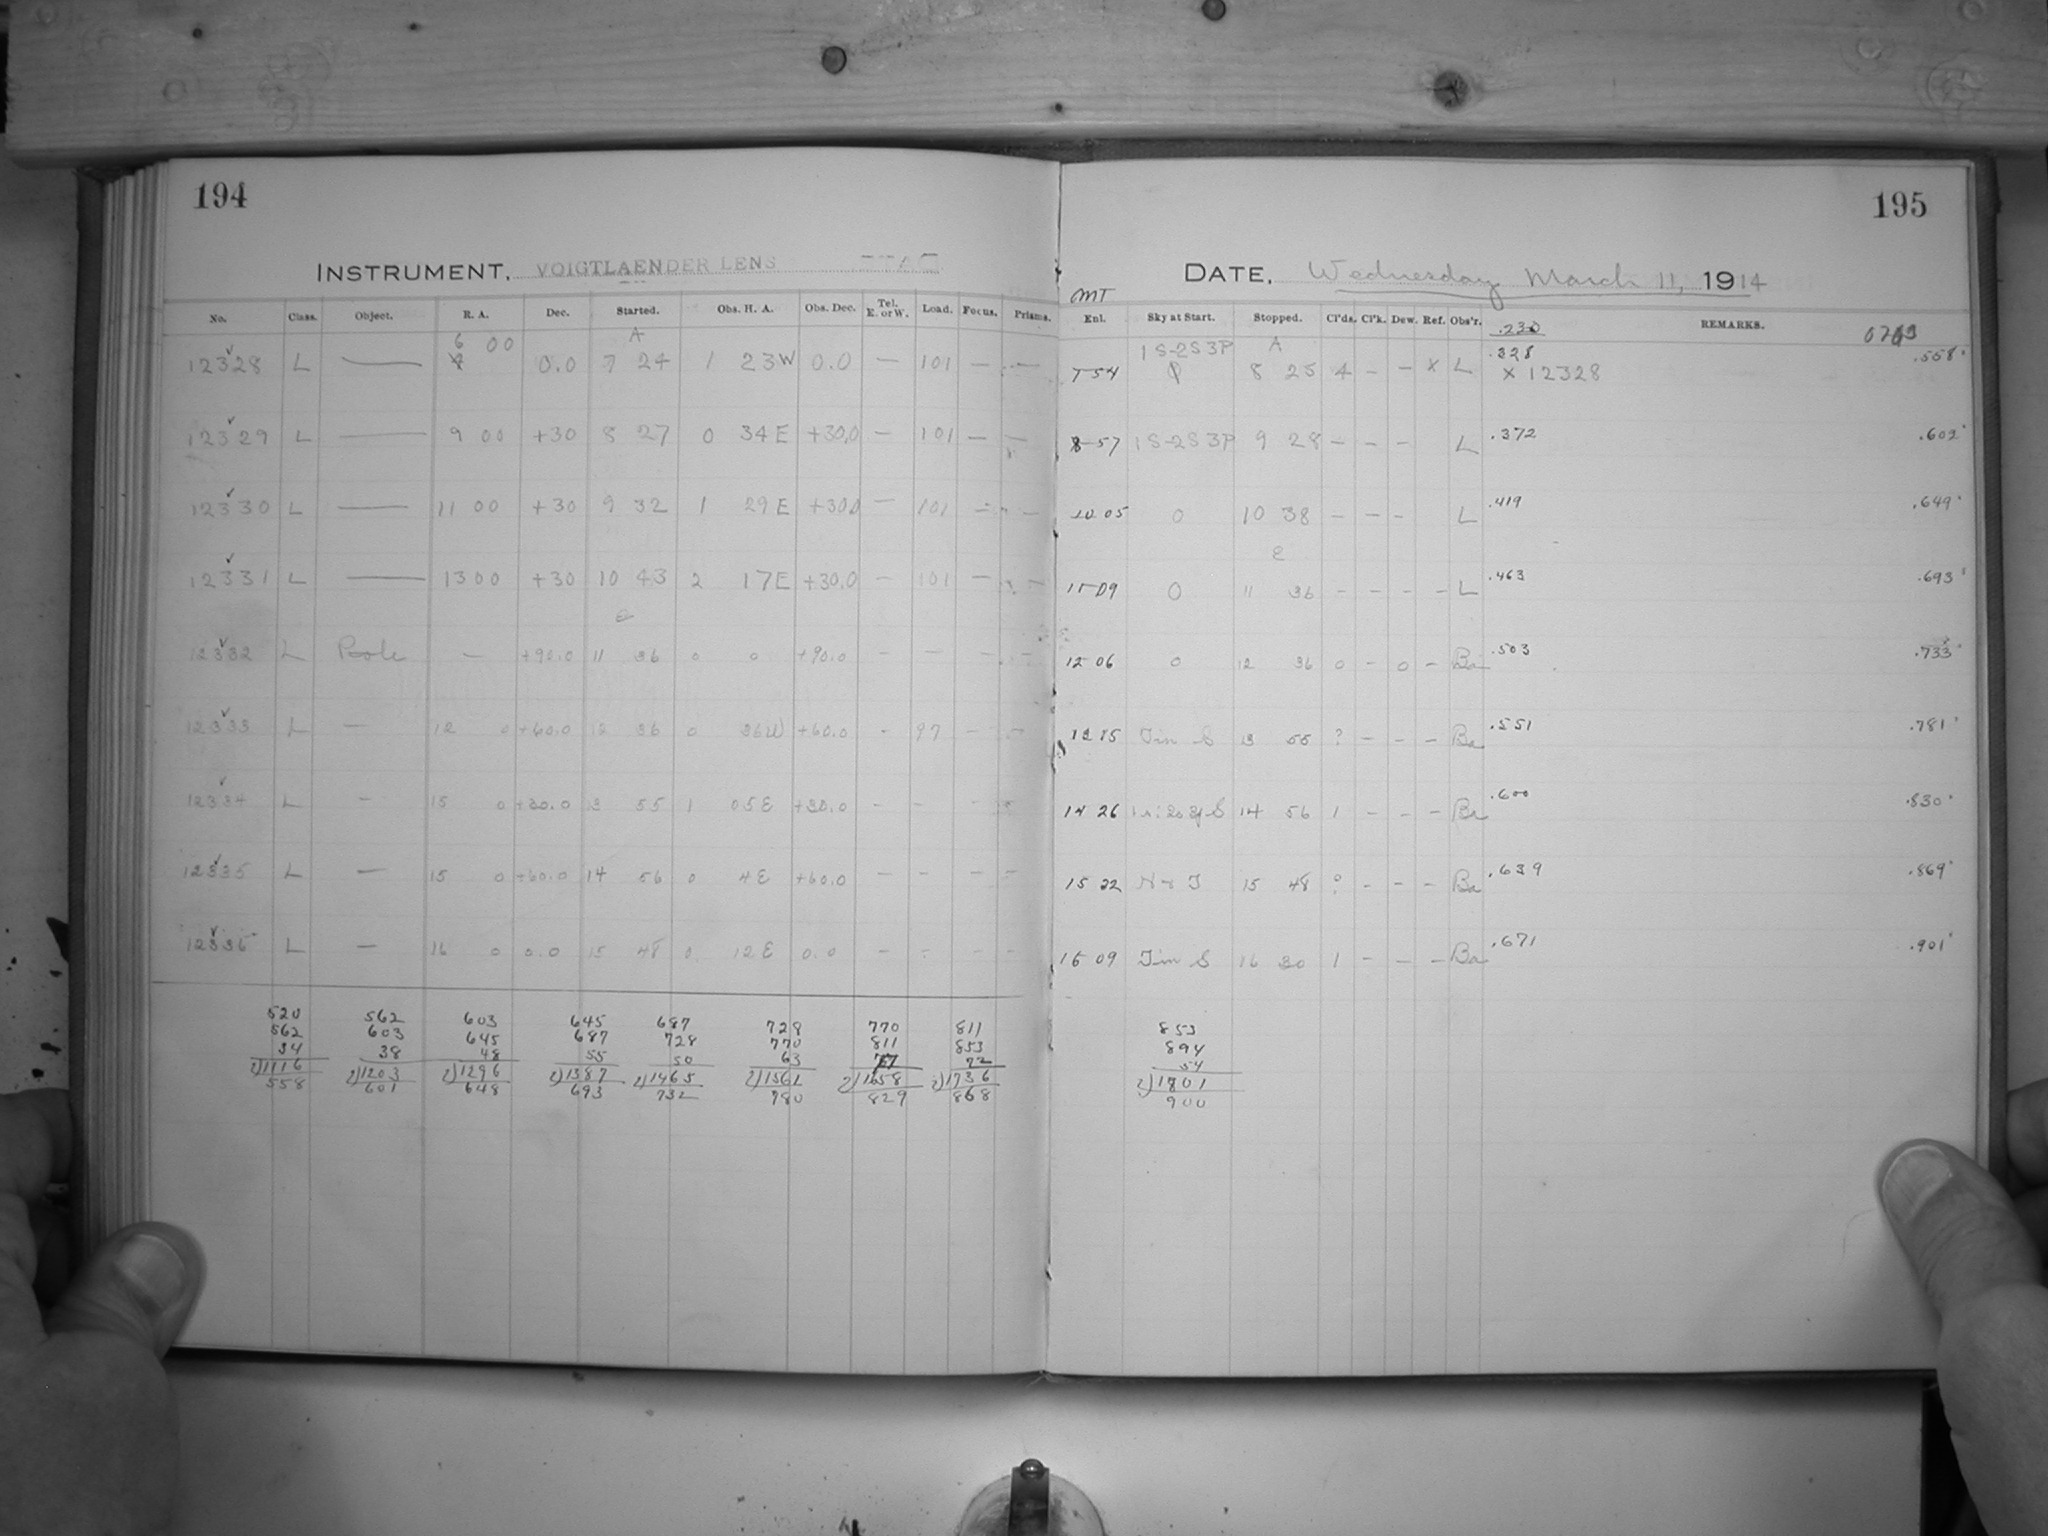 194
INSTRUMENT. VOIGTLAENDER LENS
No. Class. Object. R. A. Dec. Started. Obs. H. A. Obs. Dec. Tel. E. or W. Load. Focus. Prisms.
A
12328 L — 6 00 0.0 7 24 1 23W 0.0 — 101 — —
12329 L — 9 00 +30 8 27 0 34E +30.0 — 101 — —
12330 L — 11 00 +30 9 32 1 29E +30.0 — 101 — —
12331 L — 13 00 +30 10 43 2 17E +30.0 — 101 — —
e
12332 L Pole — +90.0 11 36 0 0 +90.0 — — — —
12333 L — 12 0 +60.0 12 36 0 36W +60.0 - 97 — —
12334 L — 15 0 +30.0 13 55 1 05E +30.0 — — — —
12335 L — 15 0 +60.0 14 56 0 4E +60.0 — — — —
12336 L — 16 0 0.0 15 48 0 12E 0.0 — — — —
520 562 603 645 687 728 770 811
562 603 645 687 728 770 811 853
34 38 48 55 50 63 72
2)1116 2)1203 2)1296 2)1387 2)1465 2)1561 2)1658 2)1736
558 601 648 693 732 780 829 868
195
DATE. Wednesday March 11, 1914
GMT
Enl. Sky at Start. Stopped. Cl'ds. Cl'k. Dew. Ref. Obs'r. .230 REMARKS.
1S-2S3P A .328 .558
7 54 8 25 4 - - X L X 12328
8 57 1S-2S3P 9 28 - - - L .372 .602
10 05 0 10 38 - - - L .419 .649
e
11 09 0 11 36 - - - - L .463 .693
12 06 0 12 36 0 - 0 - Ba .503 .733
13 15 Tim S 13 55 ? - - - Ba .551 .781
14 26 14 56 1 - - - Ba .600 .830
15 22 15 48 ? - - - Ba .639 .869
16 09 Tim S 16 30 1 - - - Ba .671 .901
853
894
54
2)1801
900